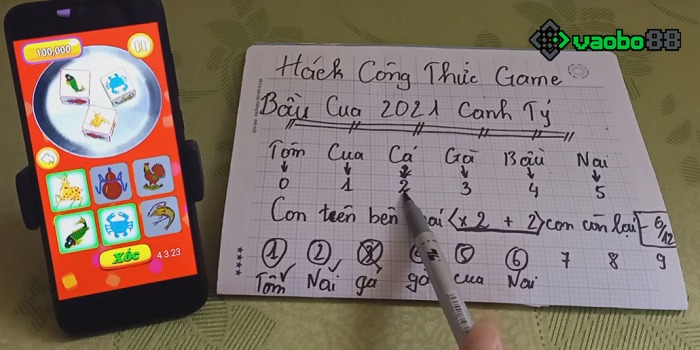 vaobo88
100,000
Xóc
4.3.23
Háck Công Thức Game
Bầu Cua 2021 Canh Tý
Tôm Cua Cá Gà Bầu Nai
0 1 2 3 4 5
Con trên bên <x 2 + 2> con còn lại - 6/12
1 2 3 5 6 7 8 9
Tôm Nai gà gà cua Nai